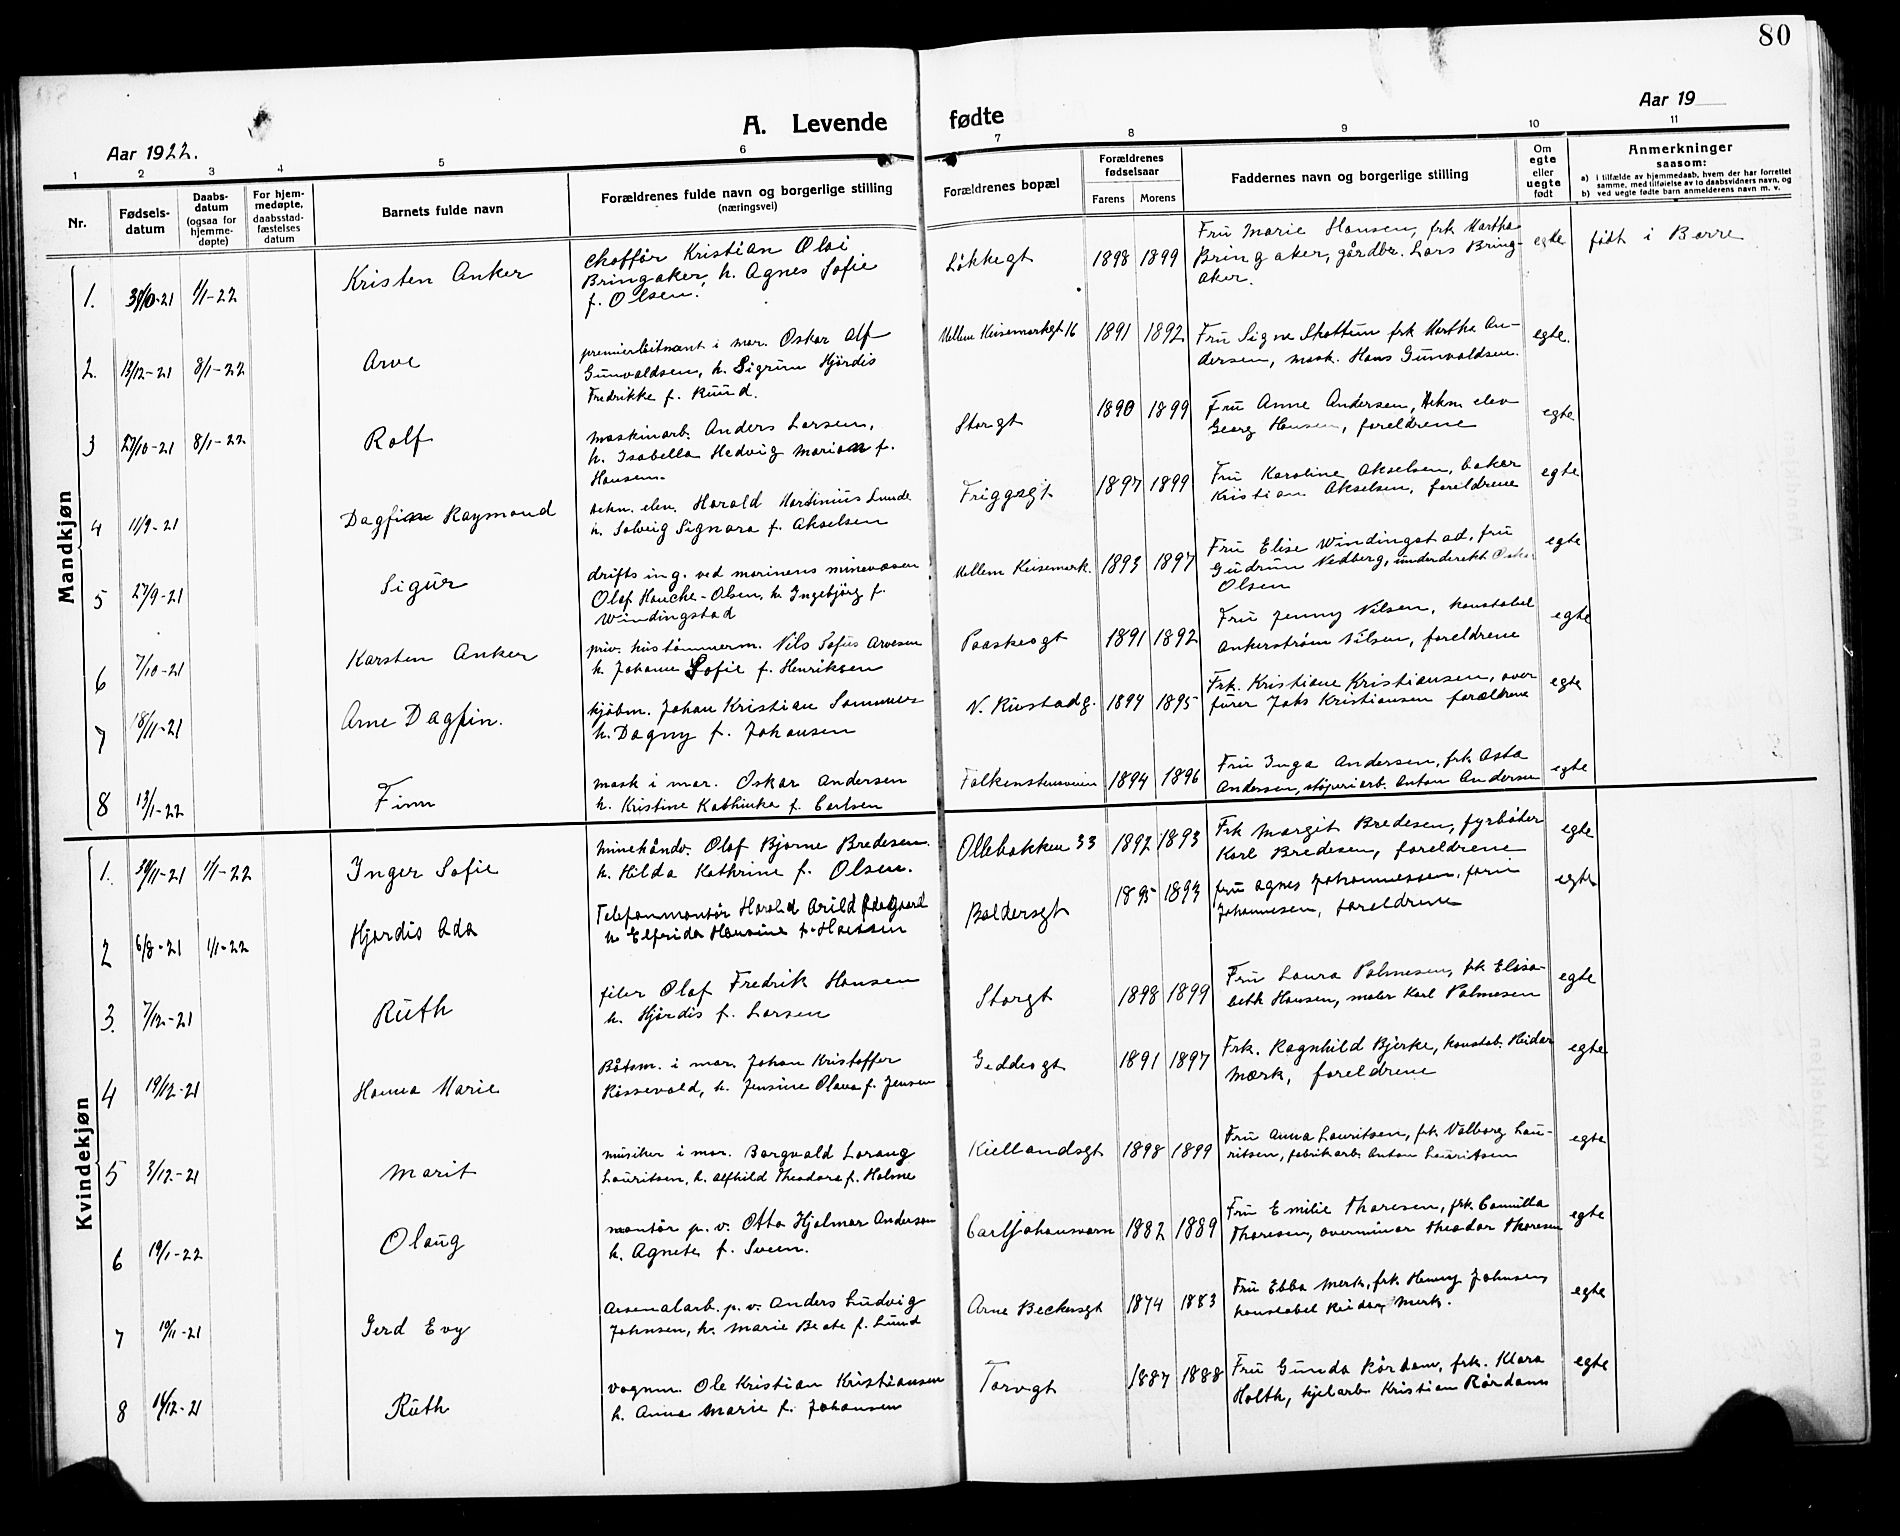 80
Aar 1922.
A. Levende fødte
Aar 19
1 2 3 4 5 6 7 8 9 10 11
Nr.
Fødsels-
datum
Daabs-
datum
(ogsaa for
hjemme-
døpte)
For hjem-
medøpte,
daabsstad-
fæstelses
datum
Barnets fulde navn
Forældrenes fulde navn og borgerlige stilling
(næringsvei)
Forældrenes bopæl
Forældrenes
fødselsaar
Farens Morens
Faddernes navn og borgerlige stilling
Om
egte
eller
uegte
født
Anmerkninger
saasom:
a) i tilfælde av hjemmedaab, hvem der har forrettet
samme, med tilføielse av to daabsvidners navn, og
b) ved uegte fødte barn anmelderens navn m. v.
Mandkjøn
1. 31/10-21 1/1-22 Kristen Anker
chaffør Kristian Olai
Bringaker, h. Agnes Sofie
f. Olsen.
Løkkegt 1898 1899
Fru Marie Hansen, frk Martha
Bringaker, gårdbr. Lars Bring-
aker.
egte født i Borre
2. 13/12-21 8/1-22 Arve
premierløitnant i mar. Oskar Alf
Gunvaldsen, h. Sigrun Hjördis
Fredrikke f. Ruud.
Mellem Keisemarkgt 16 1891 1892
Fru Signe Skottun frk Martha An-
dersen, mask. Hans Gunvaldsen.
egte.
3 27/10-21 8/1-22 Rolf
maskinarb. Anders Larsen,
h. Isabella Hedvig Marian f.
Hansen.
Storgt 1890 1899
Fru Anne Andersen, tekn elev
Georg Hansen, foreldrene
egte
4 11/9-21 Dagfin Raymond
tekn. elev. Harald Martinius Lunde
h. Solveig Signora f. Akselsen
Friggsgt 1897 1899
Fru Karoline Akselsen, baker
Kristian Akselsen, foreldrene
egte
5 27/9-21 Sigur
drifts ing. ved marinens minevæsen
Olaf Hauche-Olsen, h. Ingebjörg f.
Windingstad
Mellem Keisemark. 1893 1897
Fru Elise Windingstad, fru
Gudrun Nedberg, underdirekt Oskar
Olsen
egte
6 7/10-21 Karsten Anker
priv. hustømmerm. Nils Sofus Arvesen
h. Johanne Sofie f. Henriksen
Paaskesgt 1891 1892
Fru Jenny Nilsen, konstabel
Ankerstrøm Nilsen, foreldrene
egte
7 18/11-21 Arne Dagfin.
kjøbm. Johan Kristian Sommer
h. Dagny f. Johansen
N. Rustadg. 1894 1895
Frk. Kristiane Kristiansen, over
furer Jaks Kristiansen forældrene
egte
8 13/1-22 Finn
mask i mar. Oskar Andersen
h. Kristine Kathinka f. Carlsen
Falkenstensveien 1894 1896
Fru Inga Andersen, frk Asta
Andersen, støperiarb. Anton Andersen
egte
Kvindekjøn
1. 30/11-21 1/1-22 Inger Sofie
minehåndv. Olaf Bjarne Bredesen.
h. Hilda Kathrine f. Olsen.
Ollebakken 33 1892 1893
Frk Margit Bredesen, fyrbøter
Karl Bredesen, foreldrene
egte
2 6/8-21 1/1-22 Hjørdis Ada
Telefonmontør Harald Arild Ødegaard
h. Elfrida Hansine f. Hansen
Baldersgt 1895 1893
fru Agnes Johannessen,
Johannesen, foreldrene
egte
3. 7/12-21 Ruth
filer Olaf Fredrik Hansen
h. Hjördis f. Larsen
Storgt 1898 1899
Fru Laura Palmesen, frk Elisa-
beth Hansen, maler Karl Palmesen
egte
4 19/12-21 Hanna Marie
Båtsm. i mar. Johan Kristoffer
Røssevald, h. Jensine Olava f. Jensen
Geddesgt 1891 1897
Frk. Ragnhild Bjerke, konstab. Reidar
Mærk, foreldrene
egte
5 3/12-21 Marit
musiker i mar. Borgvald Lorang
Lauritsen, h. Alfhild Theodora f. Holme
Kiellandsgt 1898 1899
Fru Anna Lauritsen, frk Valborg Lau-
ritsen, fabrikarb. Anton Lauritsen
egte
6 19/1-22 Olaug
montør p. v. Otto Hjalmar Andersen
h. Agnete f. Sveen.
Carljohansværn 1882 1889
Fru Emilie Thoresen, frk Camilla
Thoresen, overminør Theodor Thoresen
egte
7 19/11-21 Gerd Evy
Arsenalarb. p. v. Anders Ludvig
Johnsen, h. Marie Beate f. Lund
Arne Beckersgt 1874 1883
Fru Ebba Merk, frk. Henny Johnsen,
konstabel Reidar Merk.
egte
8 14/12-21 Ruth
vognm. Ole Kristian Kristiansen
h. Anna Marie f. Johansen
Torvgt 1887 1888
Fru Gunda Rørdam, frk. Klara
Holth, kjelarb. Kristian Rørdam
egte